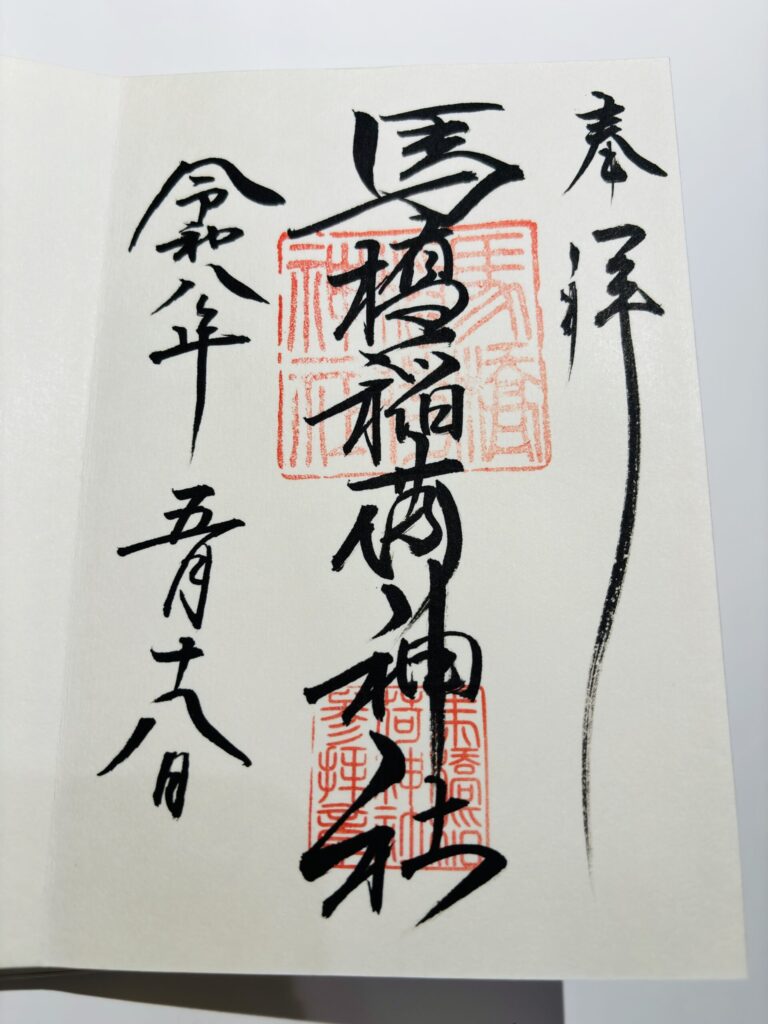 奉拝
馬橋稲荷神社
令和八年 五月十八日
馬橋稲荷神社
馬橋稲荷神社参拝章